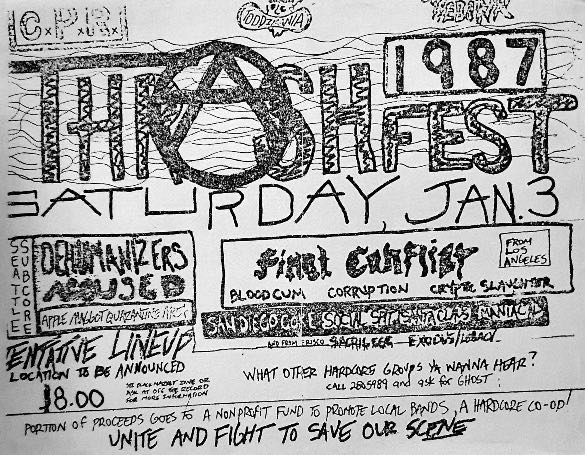 C.P.R.
1987
THRASHFEST
SATURDAY, JAN. 3
SEATTLE SUBCORE
DEHUMANIZERS
ACCUSED
APPLE MAGGOT QUARANTINE AREA
Final Conflict
FROM LOS ANGELES
BLOODCUM CORRUPTION CRYPTIC SLAUGHTER
SAN DIEGO
MANIACAL
AND FROM FRISCO SACRILEGE
TENTATIVE LINEUP
LOCATION TO BE ANNOUNCED
$8.00
FOR MORE INFORMATION
WHAT OTHER HARDCORE GROUPS YA WANNA HEAR?
CALL 2865989 and ask for GHOST
PORTION OF PROCEEDS GOES TO A NONPROFIT FUND TO PROMOTE LOCAL BANDS, A HARDCORE CO-OP!
UNITE AND FIGHT TO SAVE OUR SCENE